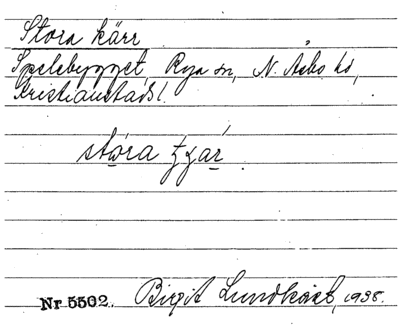 Stora kärr
Spelebygget, Rya sn, N. Åsbo hd,
Kristianstads l.
stora
Nr 5502. Birgit Lundkvist, 1938.